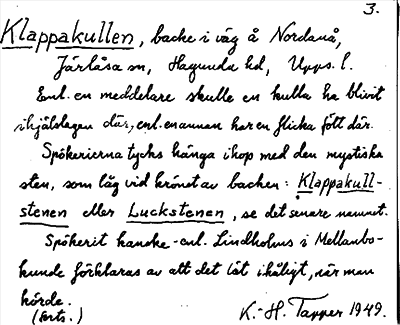 3.
Klappakullen, backe i väg å Nordanå,
Järlåsa sn, Hagunda hd, Upps. l.
Enl. en meddelare skulle en kulla ha blivit
ihjälslagen där, enl. en annan har en flicka fött där.
Spökerierna tycks hänga ihop med den mystiska
sten, som låg vid krönet av backen: Klappakull-
stenen eller Luckstenen, se det senare namnet.
Spökerit kanske - enl. Lindholms i Mellanbo-
kunde förklaras av att det lät ihåligt, när man
körde.
(forts.) K.-H. Tapper 1949.